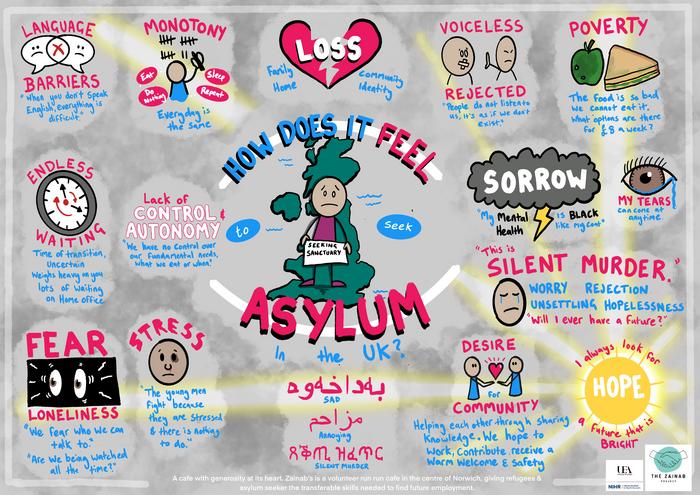 LANGUAGE
BARRIERS
"When you don't speak
English, everything is
difficult."
MONOTONY
Eat
Sleep
Do
Nothing
Repeat
Everyday is
the same
LOSS
Family
Home
Community
Identity
VOICELESS
REJECTED
"People do not listen to
us, it's as if we don't
exist."
POVERTY
The food is so bad
we cannot eat it.
What options are there
for £8 a week?
ENDLESS
WAITING
Time of transition,
Uncertain
Weighs heavy on you
lots of waiting
on Home office
Lack of
CONTROL &
AUTONOMY
"We have no control over
our fundamental needs,
what we eat or when."
HOW DOES IT FEEL
to
seek
SEEKING
SANCTUARY
ASYLUM
in the UK?
SORROW
"My Mental
Health
is BLACK
like my coat"
MY TEARS
can come at
any time.
"This is
SILENT MURDER."
WORRY REJECTION
UNSETTLING HOPELESSNESS
"Will I ever have a future?"
FEAR
LONELINESS
"We fear who we can
talk to."
"Are we being watched
all the time?"
STRESS
"The young men
fight because
they are stressed
& there is nothing
to do."
بەداخەوە
SAD
مزاحم
Annoying
SILENT MURDER
DESIRE
for
COMMUNITY
Helping each other through sharing
Knowledge. We hope to
Work, contribute receive a
Warm Welcome & Safety
I always look for
HOPE
a future that is
BRIGHT
UEA
NIHR
THE ZAINAB
PROJECT
A cafe with generosity at its heart. Zainab's is a volunteer run run cafe in the centre of Norwich, giving refugees &
asylum seeker the transferable skills needed to find future employment.